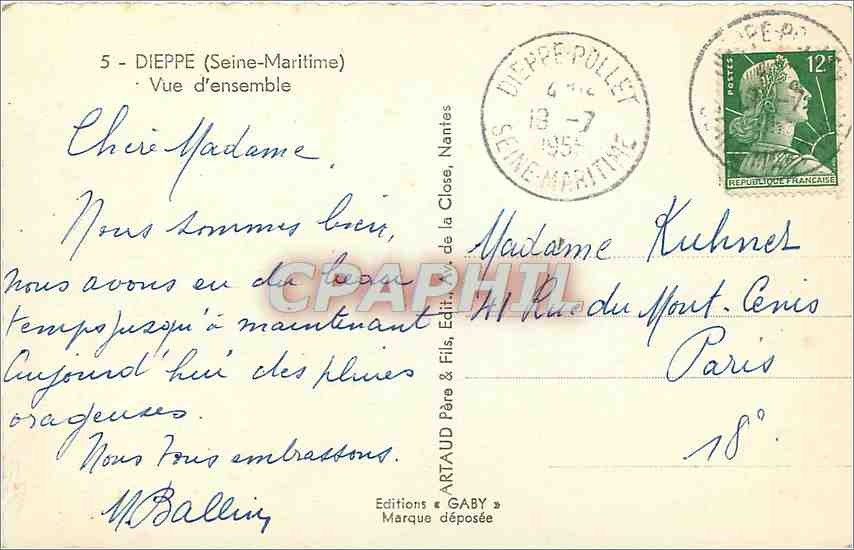 5 - DIEPPE (Seine-Maritime)
Vue d'ensemble
Chère Madame,
Nous sommes bien,
nous avons eu du beau
temps jusqu'à maintenant
Aujourd'hui des pluies
orageuses.
Nous vous embrassons.
M. Ballin
ARTAUD Père & Fils, Edit., Av. de la Close, Nantes
Editions « GABY »
Marque déposée
DIEPPE-POLLET
18 -7
SEINE-MARITIME
POSTES
12F
REPUBLIQUE FRANÇAISE
Madame Kuhner
41 Rue du Mont-Cenis
Paris
18°
CPAPHIL